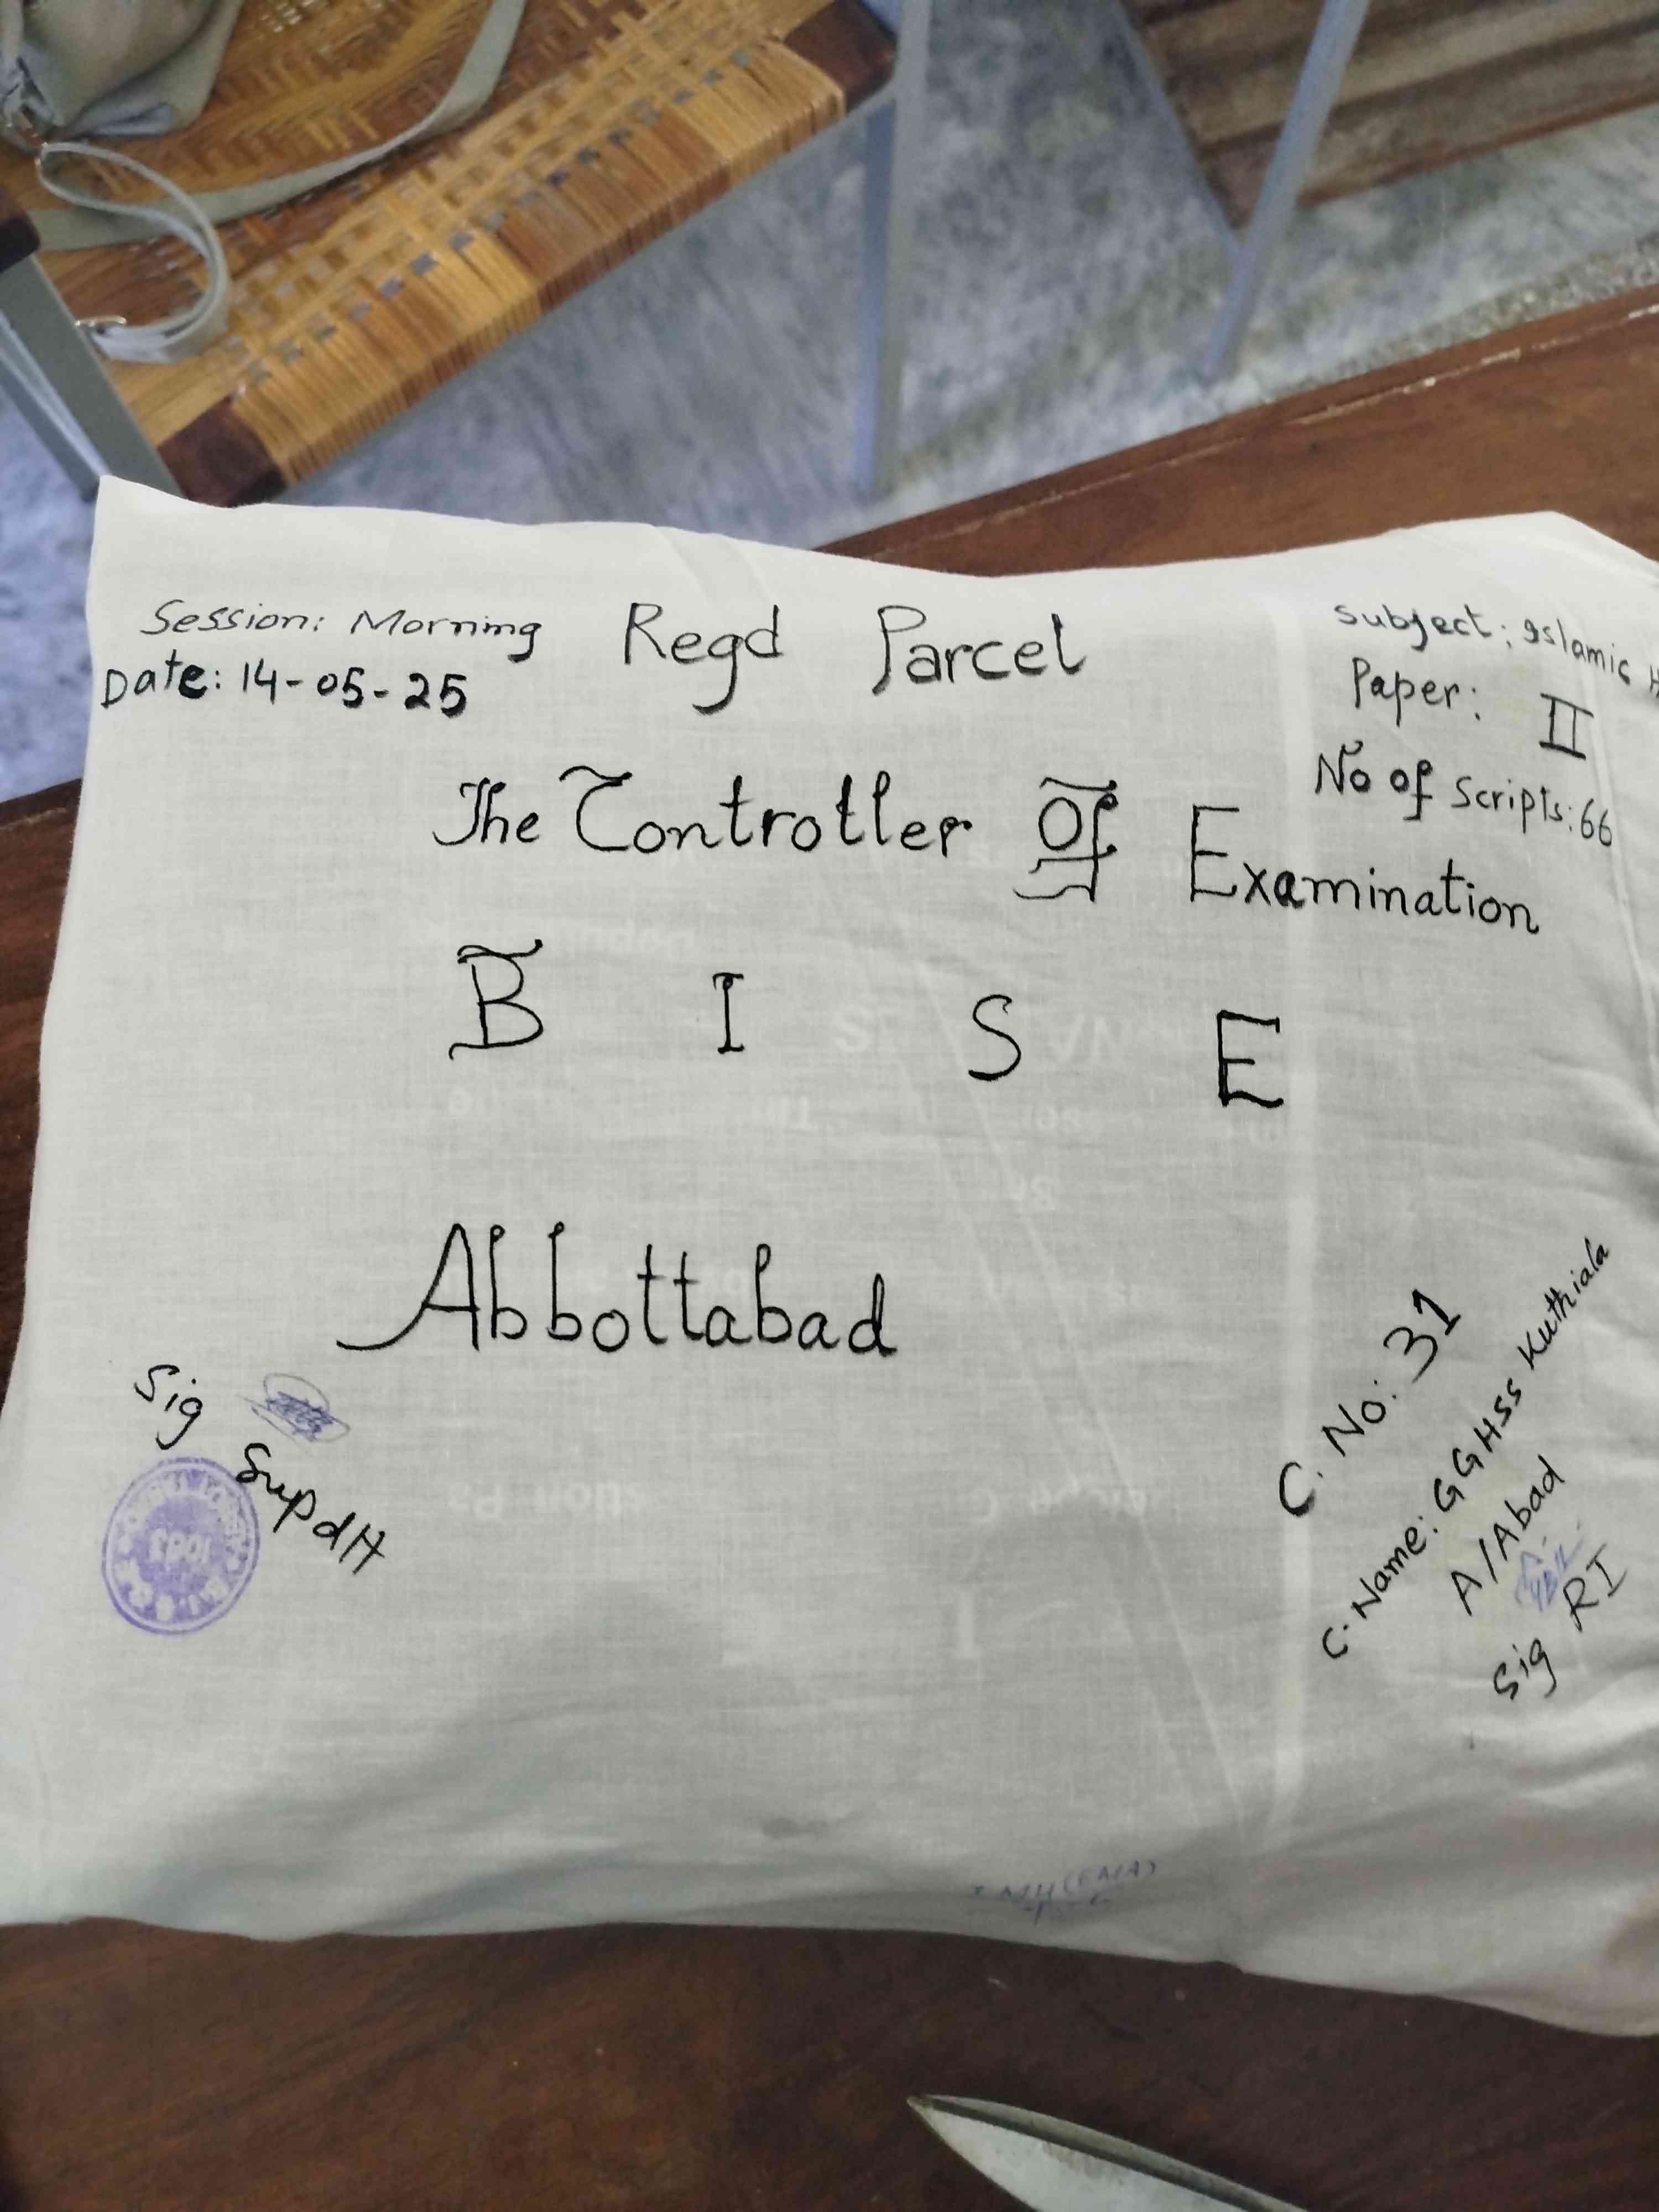 Session: Morning
Date: 14-05-25
Regd Parcel
Subject: Islamic H
Paper: II
No of Scripts: 66
The Controller Of Examination
B I S E
Abbottabad
Sig
Supdtt
C. No: 31
C. Name: GGHSS Kuthiala
A/Abad
Sig RI